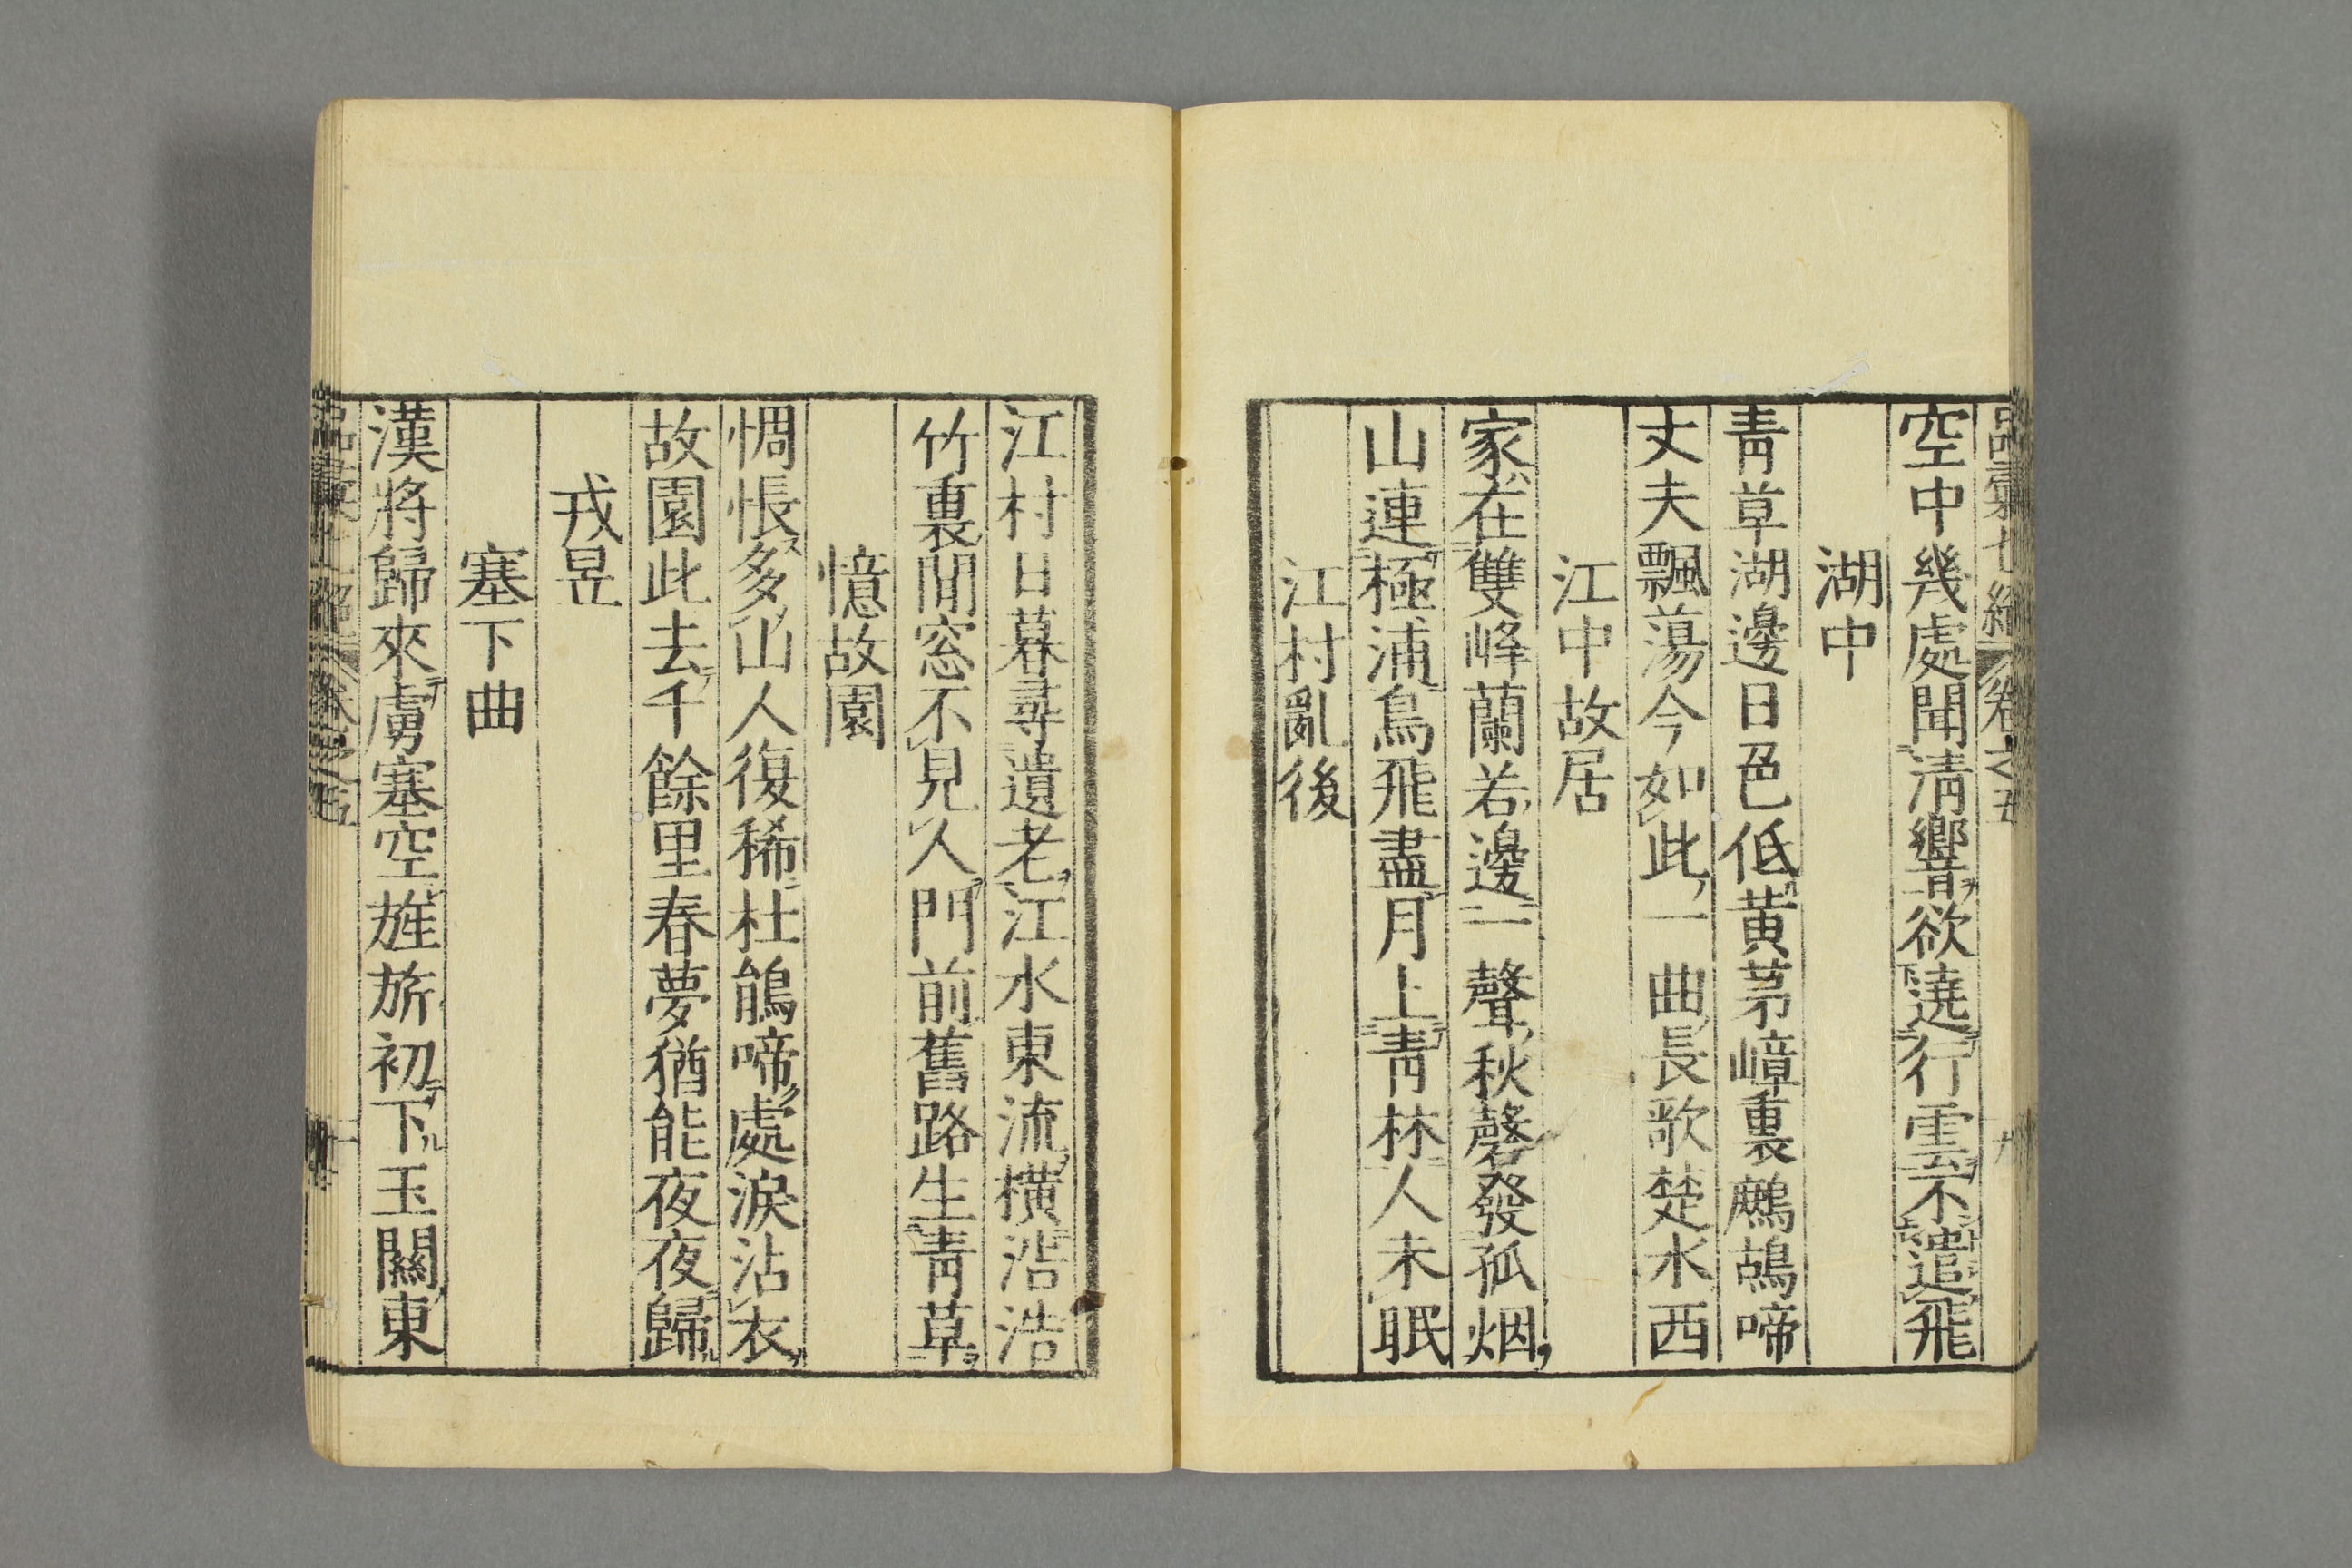 品彙七絶 卷之五
空中幾處聞淸響欲遶行雲不遣飛
湖中
靑草湖邊日色低黃茅嶂裏鷓鴣啼
丈夫飄蕩今如此一曲長歌楚水西
江中故居
家在雙峰蘭若邊一聲秋磬發孤烟
山連極浦鳥飛盡月上靑林人未眠
江村亂後
江村日暮尋遺老江水東流橫浩浩
竹裏閒窓不見人門前舊路生靑草
憶故園
惆悵多山人復稀杜鵑啼處淚沾衣
故園此去千餘里春夢猶能夜夜歸
戎昱
塞下曲
漢將歸來虜塞空旌旂初下玉關東